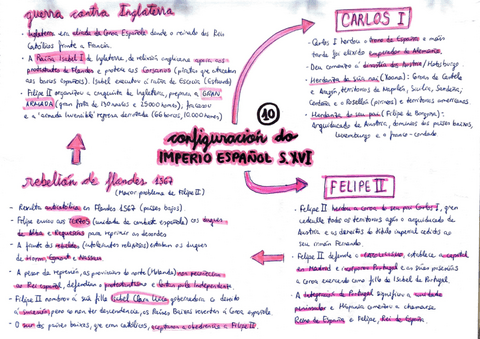 guerra contra Inglaterra
- Inglaterra era aliada da Coroa Española dende o reinado dos Reis
Católicos fronte a Francia.
- A Raíña Isabel I de Inglaterra, de relixión anglicana apoia aos
protestantes de Flandes e protexe aos Corsarios (piratas que atracaban
aos barcos españois). Isabel executa á raíña de Escocia (Estuardo)
- Felipe II organizou a conquista de Inglaterra, prepara a GRAN
ARMADA (gran frota de 130 navíos e 25000 homes), fracasou
e a "armada Invencible" regresa derrotada (66 barcos, 10.000 homes)
CARLOS I
- Carlos I herdou o trono de España e máis
tarde foi elixido emperador de Alemania.
- Deu comezo á dinastía dos Austria / Habsburgo
- Herdanza da súa nai (Xoana): Coroa de Castela
e Aragón, territorios de Nápoles, Sicilia, Sardeña,
Cerdaña e o Rosellón (pirineos) e territorios americanos
- Herdanza do seu pai (Felipe de Borgoña):
arquiducado de Austria, dominios dos países baixos,
Luxemburgo e o franco-condado
10
configuración do
IMPERIO ESPAÑOL S. XVI
rebelión de flandes 1567
(Maior problema de Felipe II)
- Revolta anticatólica en Flandes 1567 (países baixos)
- Felipe enviou aos TERCIOS (unidade de combate española) cos duques
de Alba e Requesens para reprimir as desordes
- Á fronte dos rebeldes (autoridades relixiosas) estaban os duques
de Horm, Egmont e Nassau
- A pesar da represión, as provincias do norte (Holanda) non pertencían
ao Rei español, defendían o protestantismo e loitan pola Independencia.
- Felipe II nombrou á súa filla Isabel Clara Eugenia gobernadora co dereito
á sucesión, pero ao non ter descendencia, os Países Baixos reverten á Coroa española.
- O sur dos países baixos, que eran católicos, aceptaron a obediencia a Felipe II.
FELIPE II
- Felipe II herdou a coroa do seu pai Carlos I, gran
cedeulle todos os territorios agás o arquiducado de
Austria e os dereitos do título imperial cedidos ao
seu irmán Fernando.
- Felipe II defende o catolicismo, establece a capital
en Madrid e incorpora Portugal e as súas posesións
á coroa exercendo como fillo de Isabel de Portugal.
- A integración de Portugal significou a unidade
peninsular e Hispania comezou a chamarse
Reino de España e Felipe, Rei de España